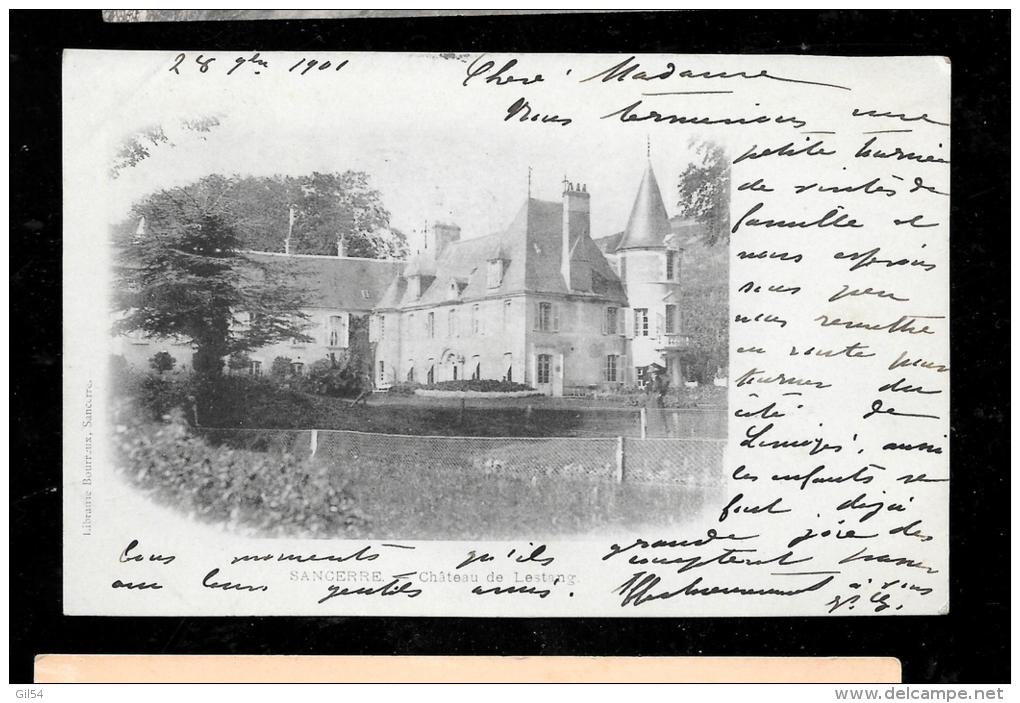 28 9bre 1901
Chère Madame
Nous terminions une
petite tournée
de visites de
famille et
nous espérons
sous peu
nous remettre
en route pour
tourner du
côté de
Limoges, aussi
les enfants se
font déjà
grande joie des
bons moments qu'ils comptent passer
avec leurs gentils amis. Affectueusement à vous
SANCERRE. — Château de Lestang.
Librairie Bourreux, Sancerre.
Gil54
delcampe.net